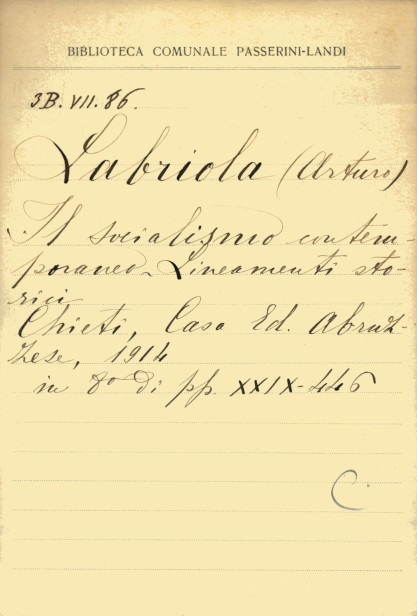 BIBLIOTECA COMUNALE PASSERINI-LANDI
3B. VII. 86.
Labriola (Arturo)
Il socialismo contem-
poraneo. Lineamenti sto-
rici
Chieti, Casa Ed. Abruz-
zese, 1914
in 8º di pp. XXIX-446
C.